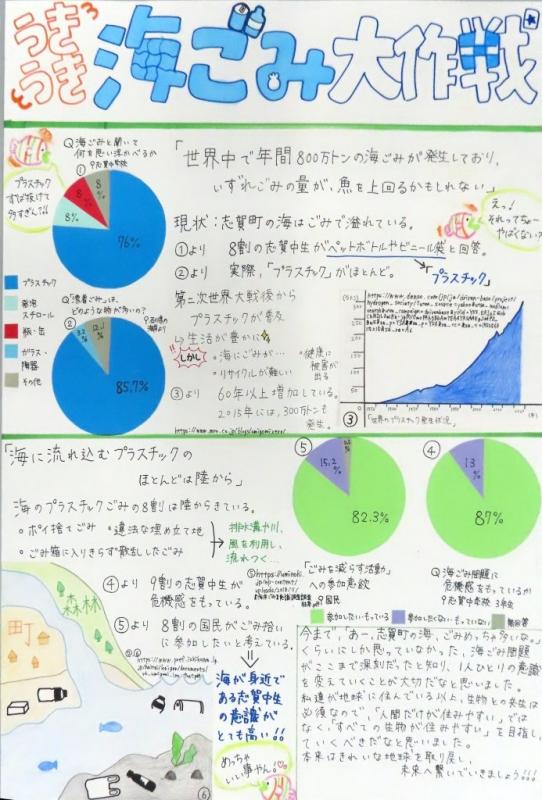 うきうき 海ごみ大作戦
Q 海ごみと聞いて
何を思い浮かべるか
①
プラスチック
ずば抜けて
多すぎん?!!
8%
8%
76%
プラスチック
発泡
スチロール
缶・缶
ガラス・
陶器
その他
Q「漂着ごみ」は、
どのような物が多いの?
②
85.7%
「世界中で年間800万トンの海ごみが発生しており、
いずれごみの量が、魚を上回るかもしれない」
えっ!
それってちょー
やばくない?
現状:志賀町の海はごみで溢れている。
①より 8割の志賀中生がペットボトルやビニール袋と回答。
②より 実際、「プラスチック」がほとんど。
「プラスチック」
第二次世界大戦後から
プラスチックが普及
↳生活が豊かに
しかし
・海にごみが…
・リサイクルが難しい
・健康に
被害が
出る
③より 60年以上増加している。
2015年には、300万トンも
発生。
③
「世界のプラスチック発生状況」
「海に流れ込むプラスチックの
ほとんどは陸から」
海のプラスチックごみの8割は陸からきている。
・ポイ捨てごみ ・違法な埋め立て地
・ごみ箱に入りきらず散乱したごみ
排水溝や川、
風を利用し、
流れつく…
⑤
15.2%
82.3%
④
13%
87%
「ごみを減らす活動」
への参加意欲
Q 海ごみ問題に
危機感をもっているか
参加したい・もっている
参加したくない・もっていない
無回答
④より 9割の志賀中生が
危機感をもっている。
⑤より 8割の国民がごみ拾い
に参加したいと考えている。
海が身近で
ある志賀中生
の意識が
とても高い!!
めっちゃ
いい事やん!
森林
町
⑥
今まで、「あー、志賀町の海、ごみめっちゃ多いな。」
くらいにしか思っていなかった。海ごみ問題
がここまで深刻だったと知り、1人ひとりの意識
を変えていくことが大切だなと思いました。
私達が地球に住んでいる以上、生物との共生は
必須なので、「人間だけが住みやすい」では
なく、「すべての生物が住みやすい」を目指し
ていくべきだなと思いました。
本来はきれいな地球を取り戻し、
未来へ繋いでいきましょう!!!